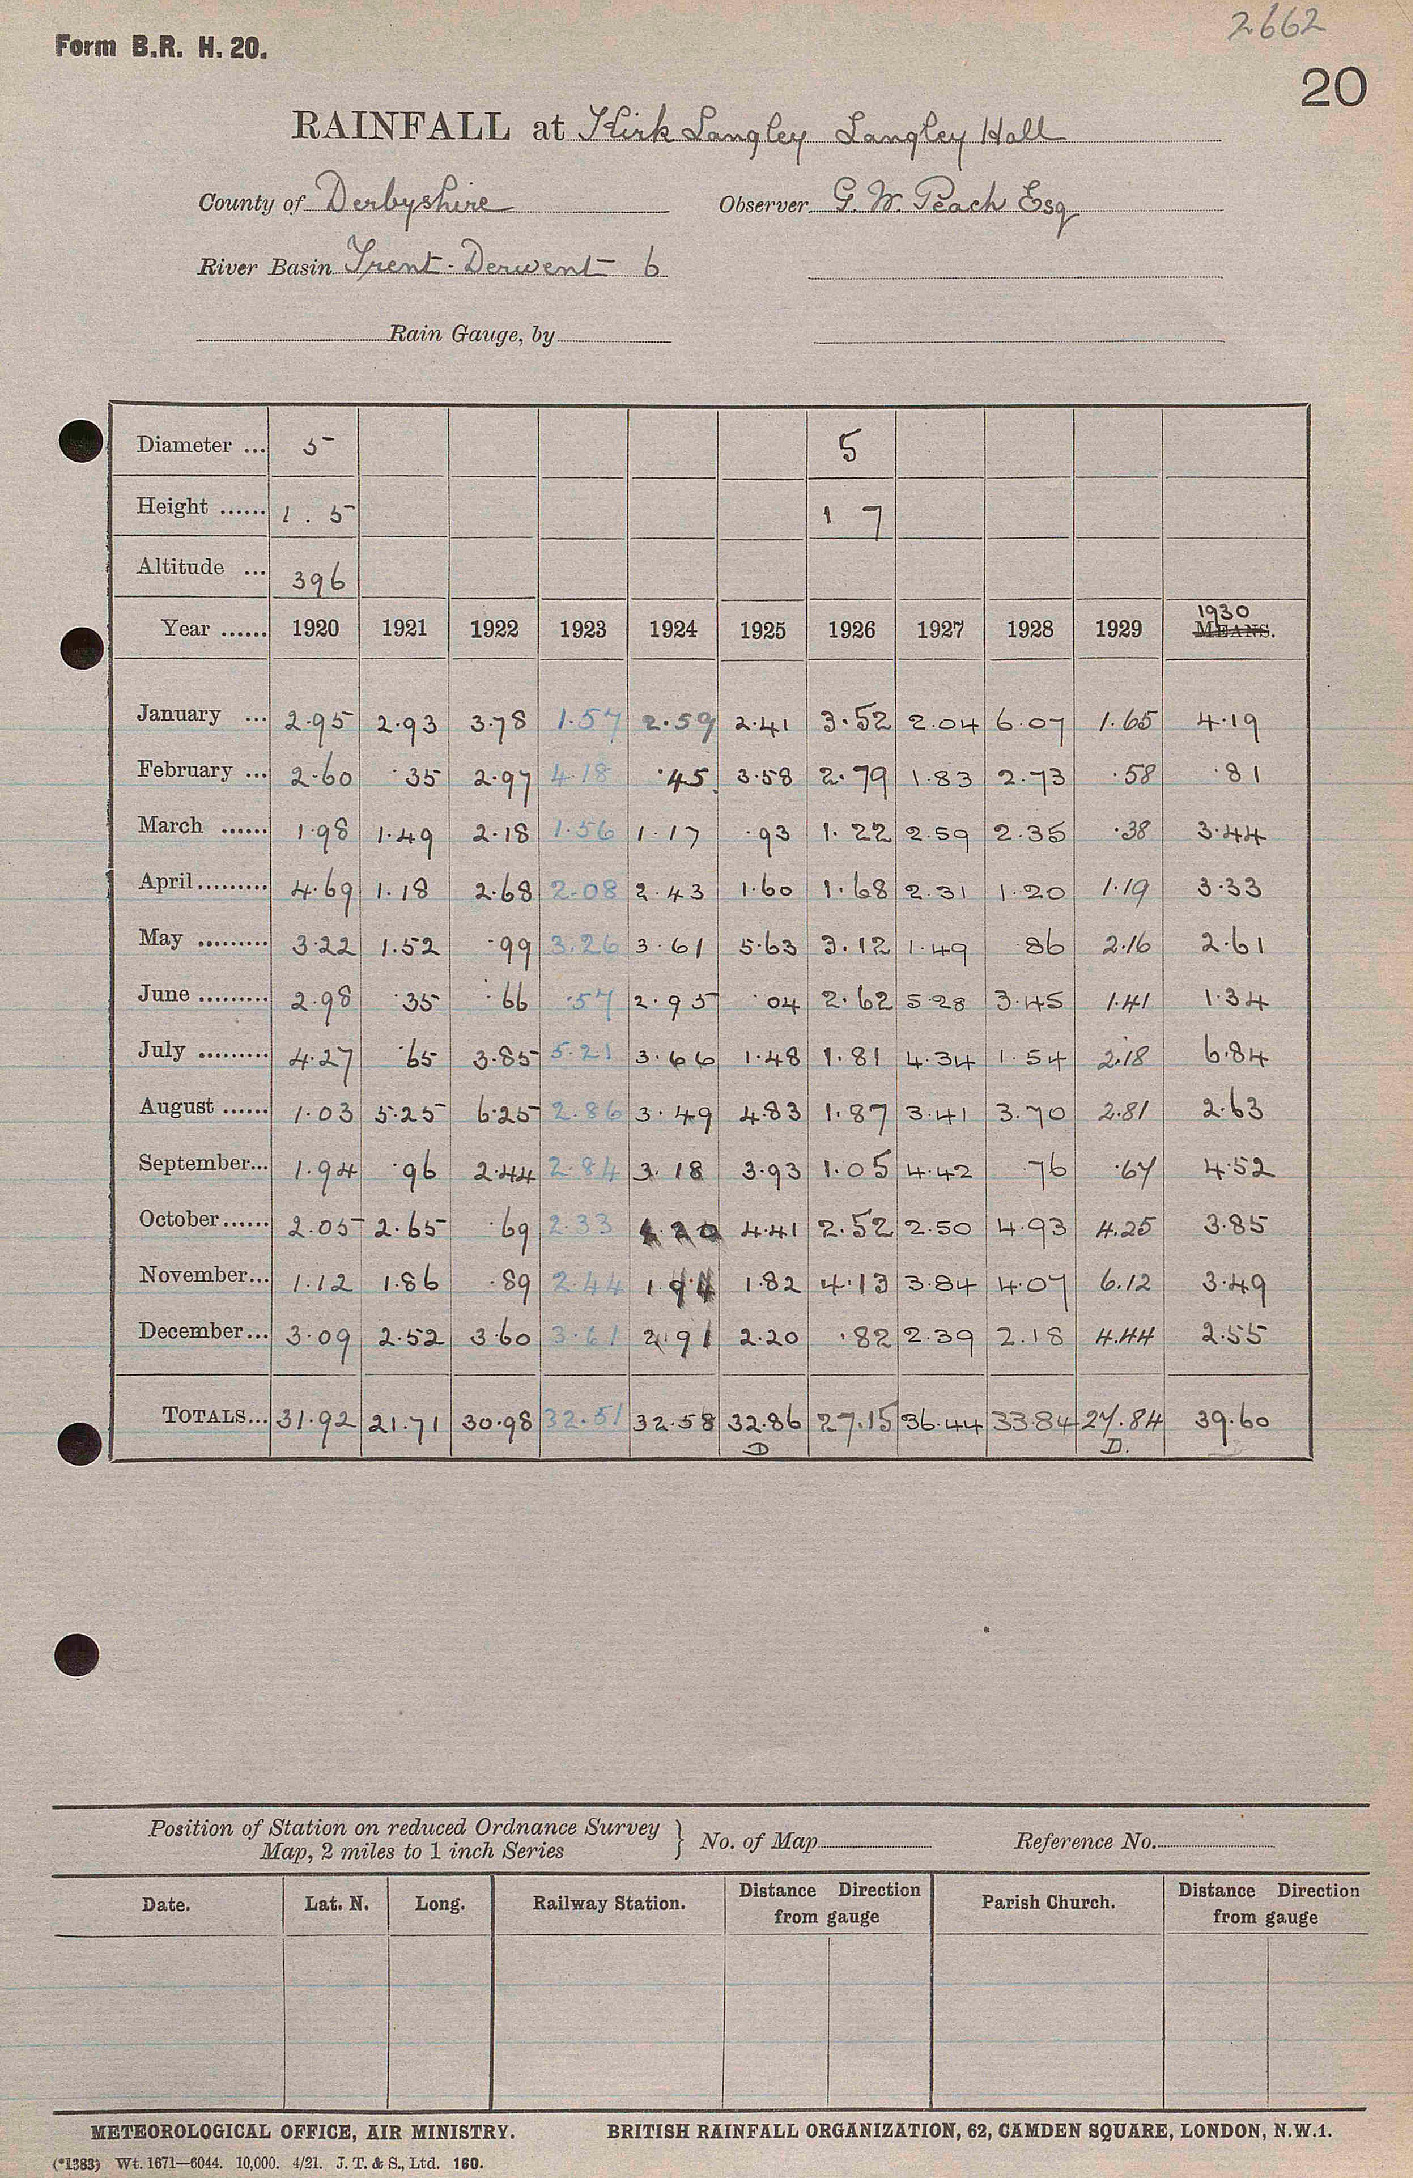 2662
Form B.R. H. 20.
20
RAINFALL at Kirk Langley Langley Hall
County of Derbyshire Observer G. W. Peach Esq
River Basin Trent - Derwent 6
Rain Gauge, by
Diameter ... 5 5
Height ...... 1 . 5 1 7
Altitude ... 396
1930
Year ...... 1920 1921 1922 1923 1924 1925 1926 1927 1928 1929 MEANS.
January ... 2.95 2.93 3.78 1.57 2.59 2.41 3.52 2.04 6.07 1.65 4.19
February ... 2.60 .35 2.97 4.18 .45 3.58 2.79 1.83 2.73 .58 .81
March ...... 1.98 1.49 2.18 1.56 1.17 .93 1.22 2.59 2.35 .38 3.44
April......... 4.69 1.18 2.68 2.08 2.43 1.60 1.68 2.31 1.20 1.19 3.33
May ......... 3.22 1.52 .99 3.26 3.61 5.63 3.12 1.49 .86 2.16 2.61
June ......... 2.98 .35 .66 .57 2.95 .04 2.62 5.28 3.45 1.41 1.34
July ......... 4.27 .65 3.85 5.21 3.66 1.48 1.81 4.34 1.54 2.18 6.84
August ...... 1.03 5.25 6.25 2.86 3.49 4.83 1.87 3.41 3.70 2.81 2.63
September... 1.94 .96 2.44 2.84 3.18 3.93 1.05 4.42 .76 .67 4.52
October...... 2.05 2.65 .69 2.33 4.20 4.41 2.52 2.50 4.93 4.25 3.85
November... 1.12 1.86 .89 2.44 1.94 1.82 4.13 3.84 4.07 6.12 3.49
December... 3.09 2.52 3.60 3.61 2.91 2.20 .82 2.39 2.18 4.44 2.55
TOTALS... 31.92 21.71 30.98 32.51 32.58 32.86 27.15 36.44 33.84 27.84 39.60
D D.
Position of Station on reduced Ordnance Survey
Map, 2 miles to 1 inch Series } No. of Map Reference No.
Date. Lat. N. Long. Railway Station. Distance Direction from gauge Parish Church. Distance Direction from gauge
METEOROLOGICAL OFFICE, AIR MINISTRY. BRITISH RAINFALL ORGANIZATION, 62, CAMDEN SQUARE, LONDON, N.W.1.
(*1383) Wt. 1671—6044. 10,000. 4/21. J. T. & S., Ltd. 160.